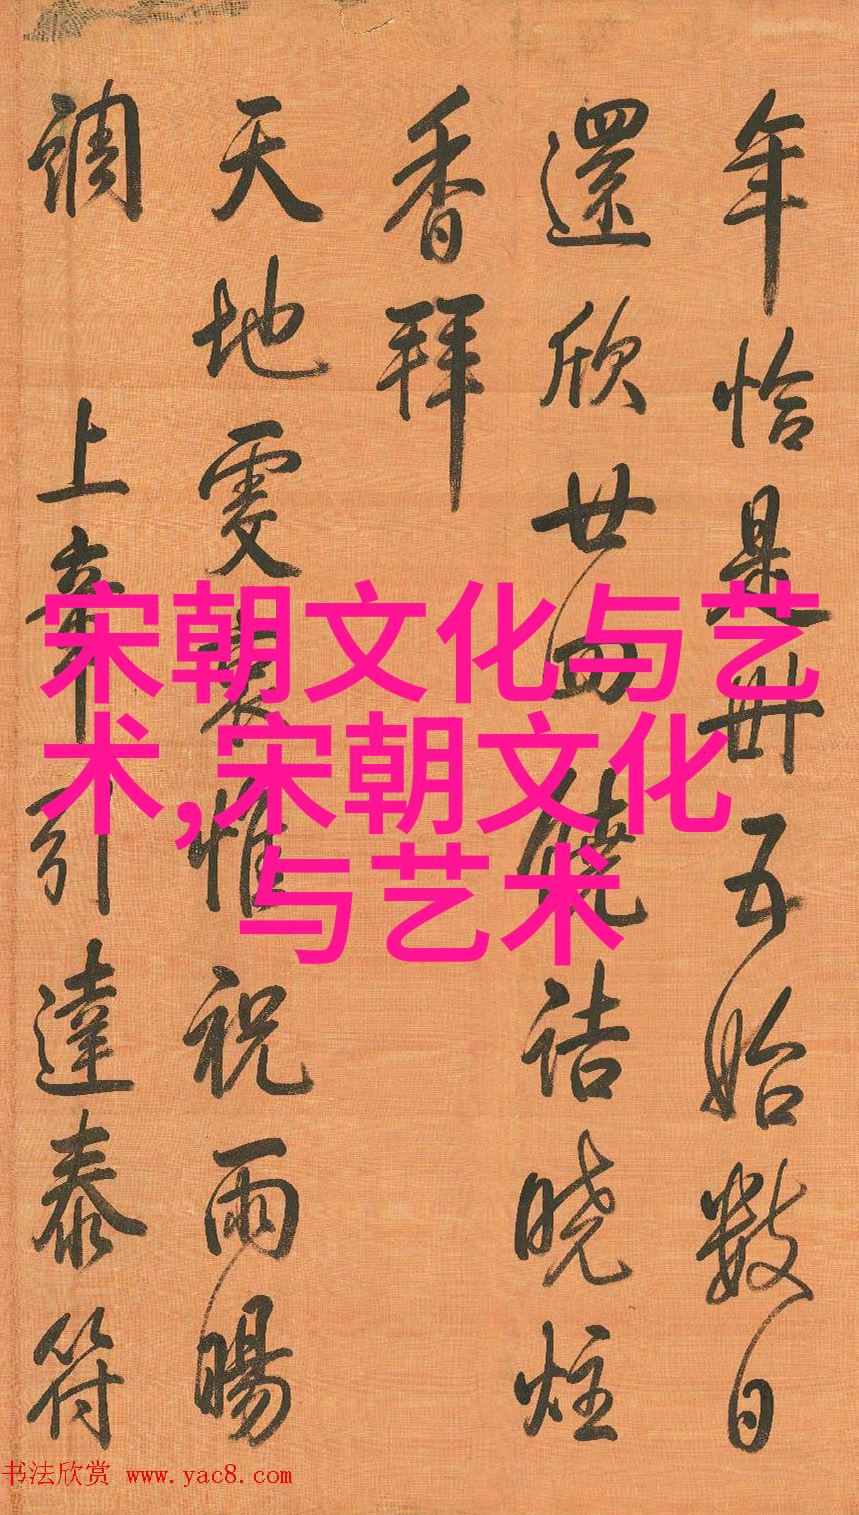 年恰是卅五始數日
還欣廿四饒詰曉炷
香拜
天地雯襄惟祝雨暘
調 上辛引達泰符
宋朝文化与艺
术,宋朝文化
与艺术
书法欣赏 www.yac8.com